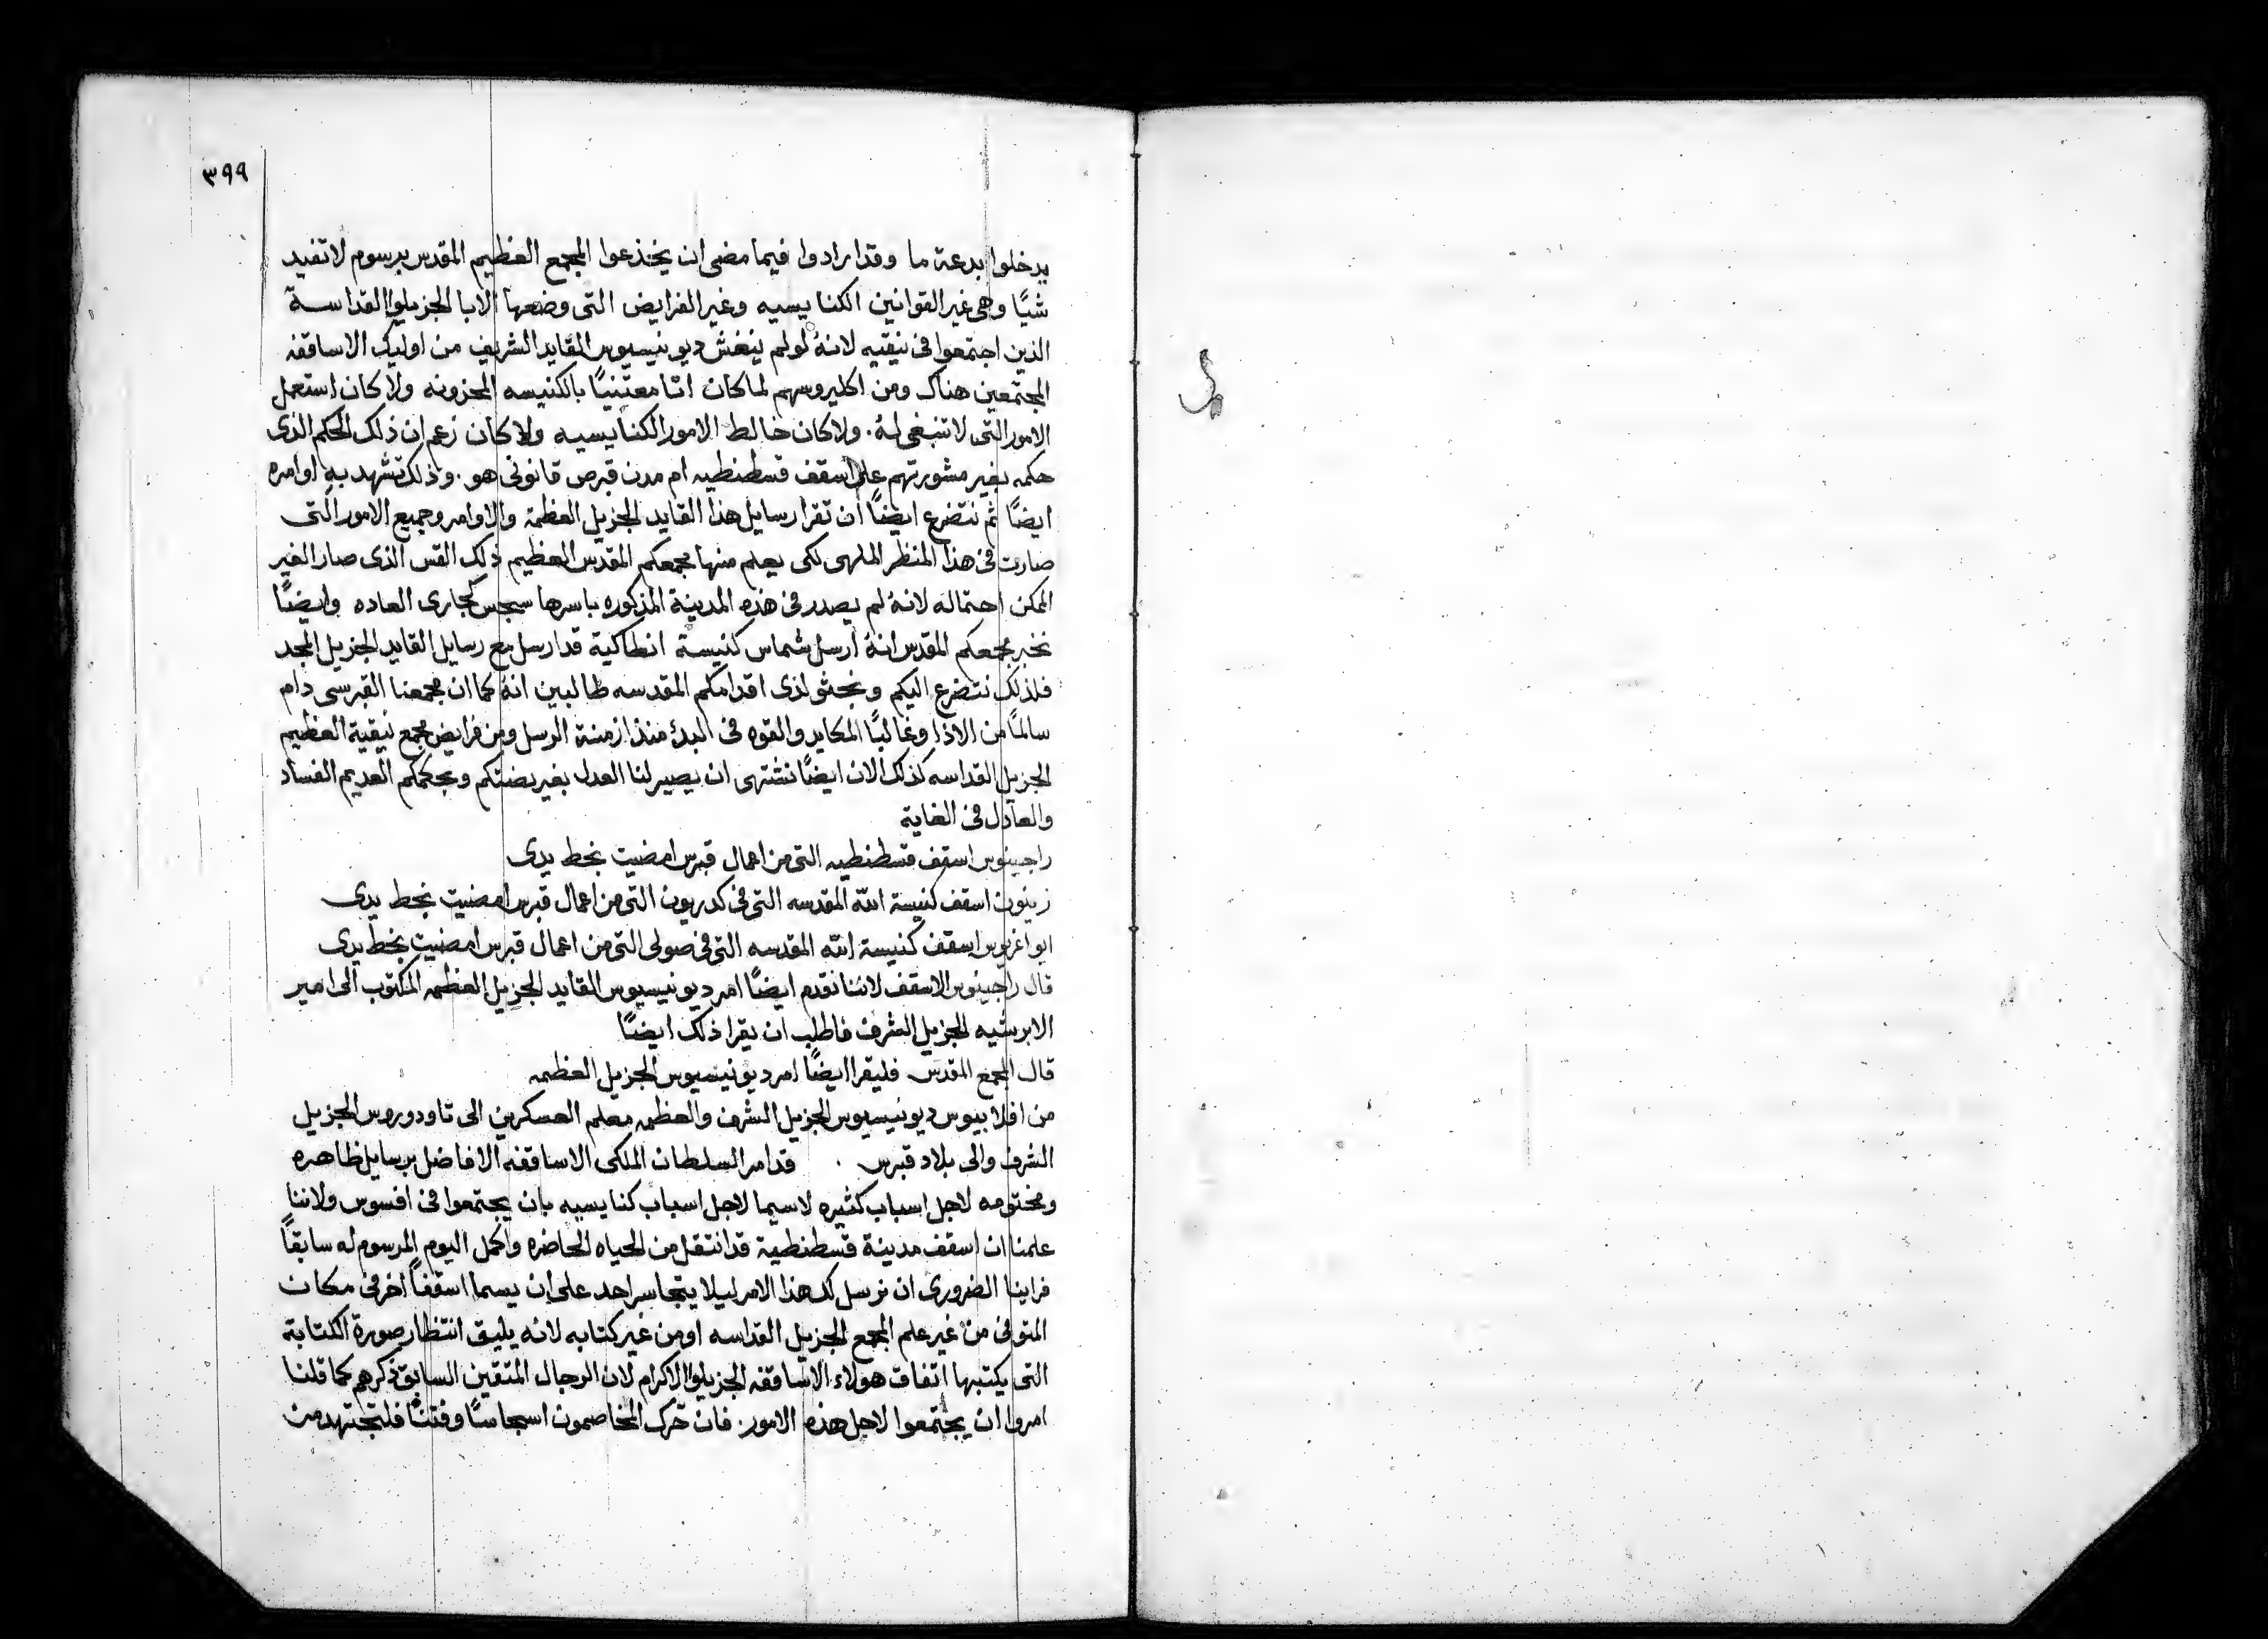 ٣٩٩
يدخلوا بدعة ما وقد ارادوا فيما مضى ان يخذعوا المجمع العظيم المقدس برسوم لا تفيد
شيًا وهى غير القوانين الكنايسيه وغير الفرايض التى وضعها الابا الجزيلوا القداسة
الذين اجتمعوا فى نيقيه لانهُ لو لم ينغش ديونيسيوس القايد الشريف من اوليك الاساقفه
المجتمعين هناك ومن اكليروسهم لما كان اتا معتنيًا بالكنيسه المحزونه ولا كان استعمل
الامور التى لا تنبغى لهُ. ولا كان خالط الامور الكنايسيه ولا كان زعم ان ذلك الحكم الذى
حكمه بغير مشورتهم على اسقف قسطنطيه ام مدن قبرص قانونى هو. وذلك تشهد به اوامره
ايضًا ثم نتضرع ايضًا ان تقرا رسايل هذا القايد الجزيل العظمة والاوامر وجميع الامور التى
صارت فى هذا المنظر الملهى لكى يعلم منها مجمعكم المقدس العظيم ذلك القس الذى صار الغير
الممكن احتماله لانهُ لم يصدر فى هذه المدينة المذكوره باسرها سجس كجارى العاده وايضًا
نخبر مجمعكم المقدس انهُ ارسل شماس كنيسة انطاكية قد ارسل مع رسايل القايد الجزيل المجد
فلذلك نتضرع اليكم ونجثو لذى اقدامكم المقدسه طالبين انهُ كما ان مجمعنا القبرسى دام
سالمًا من الاذا وغالبًا المكايد والقوه فى البدء منذ ازمنة الرسل ومن فرايض مجمع نيقية العظيم
الجزيل القداسه كذلك الان ايضًا نشتهى ان يصير لنا العدل بفريضتكم وبحكمكم العديم الفساد
والعادل فى الغاية
راجينوس اسقف قسطنطيه التى من اعمال قبرس امضيت بخط يدى
زينون اسقف كنيسة الله المقدسه التى فى كدريون التى من اعمال قبرس امضيت بخط يدى
ابواغريوس اسقف كنيسة الله المقدسه التى فى صولى التى من اعمال قبرس امضيت بخط يدى
قال راجينوس الاسقف لاننا نقدم ايضًا امر ديونيسيوس القايد الجزيل العظمه المكتوب الى امير
الابرشيه الجزيل الشرف فاطلب ان يقرا ذلك ايضًا
قال المجمع المقدس فليقرا ايضًا امر ديونيسيوس الجزيل العظمه
من افلابيوس ديونيسيوس الجزيل الشرف والعظمه معلم العسكرين الى تاودوروس الجزيل
الشرف والى بلاد قبرس . قد امر السلطان الملكى الاساقفه الافاضل برسايل ظاهره
ومختومه لاجل اسباب كثيره لاسيما لاجل اسباب كنايسيه بان يجتمعوا فى افسوس ولاننا
علمنا ان اسقف مدينة قسطنطية قد انتقل من الحياه الحاضره واكمل اليوم المرسوم له سابقًا
فراينا الضرورى ان نرسل لك هذا الامر ليلا يتجاسر احد على ان يسما اسقفًا اخر فى مكان
المتوفى من غير علم المجمع الجزيل القداسه او من غير كتابه لانه يليق انتظار صورة الكتابة
التى يكتبها اتفاق هولاء الاساقفه الجزيلوا الاكرام لان الرجال المتقين السابق ذكرهم كما قلنا
امروا ان يجتمعوا لاجل هذه الامور. فان تحرك المخاصمون اسجاسًا وفتنًا فلتجتهد من